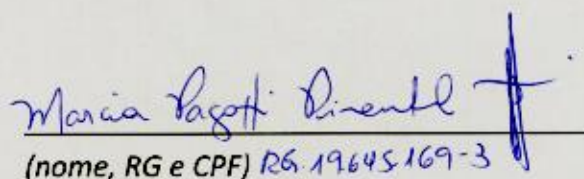 Marcia Pagotti Pimentel
(nome, RG e CPF) RG. 19.645.169-3